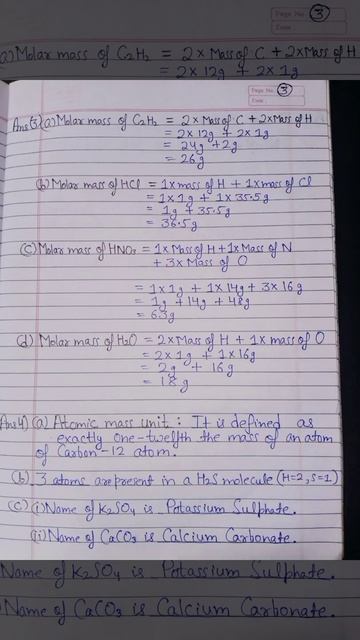 Page No. 3
Date
a) Molar mass of C2H2 = 2 x Mass of C + 2 x Mass of H
= 2 x 12g + 2 x 1g
Page No. 3
Date
Ans(3)(a) Molar mass of C2H2 = 2 x Mass of C + 2 x Mass of H
= 2 x 12g + 2 x 1g
= 24g + 2g
= 26g
(b) Molar mass of HCl = 1 x mass of H + 1 x mass of Cl
= 1 x 1g + 1 x 35.5g
= 1g + 35.5g
= 36.5g
(c) Molar mass of HNO3 = 1 x Mass of H + 1 x Mass of N
+ 3 x Mass of O
= 1 x 1g + 1 x 14g + 3 x 16g
= 1g + 14g + 48g
= 63g
(d) Molar mass of H2O = 2 x Mass of H + 1 x mass of O
= 2 x 1g + 1 x 16g
= 2g + 16g
= 18g
Ans4) (a) Atomic mass unit : It is defined as
exactly one-twelfth the mass of an atom
of Carbon-12 atom.
(b) 3 atoms are present in a H2S molecule (H=2, S=1)
(c) (i) Name of K2SO4 is Potassium Sulphate.
(ii) Name of CaCO3 is Calcium Carbonate.
Name of K2SO4 is Potassium Sulphate.
Name of CaCO3 is Calcium Carbonate.